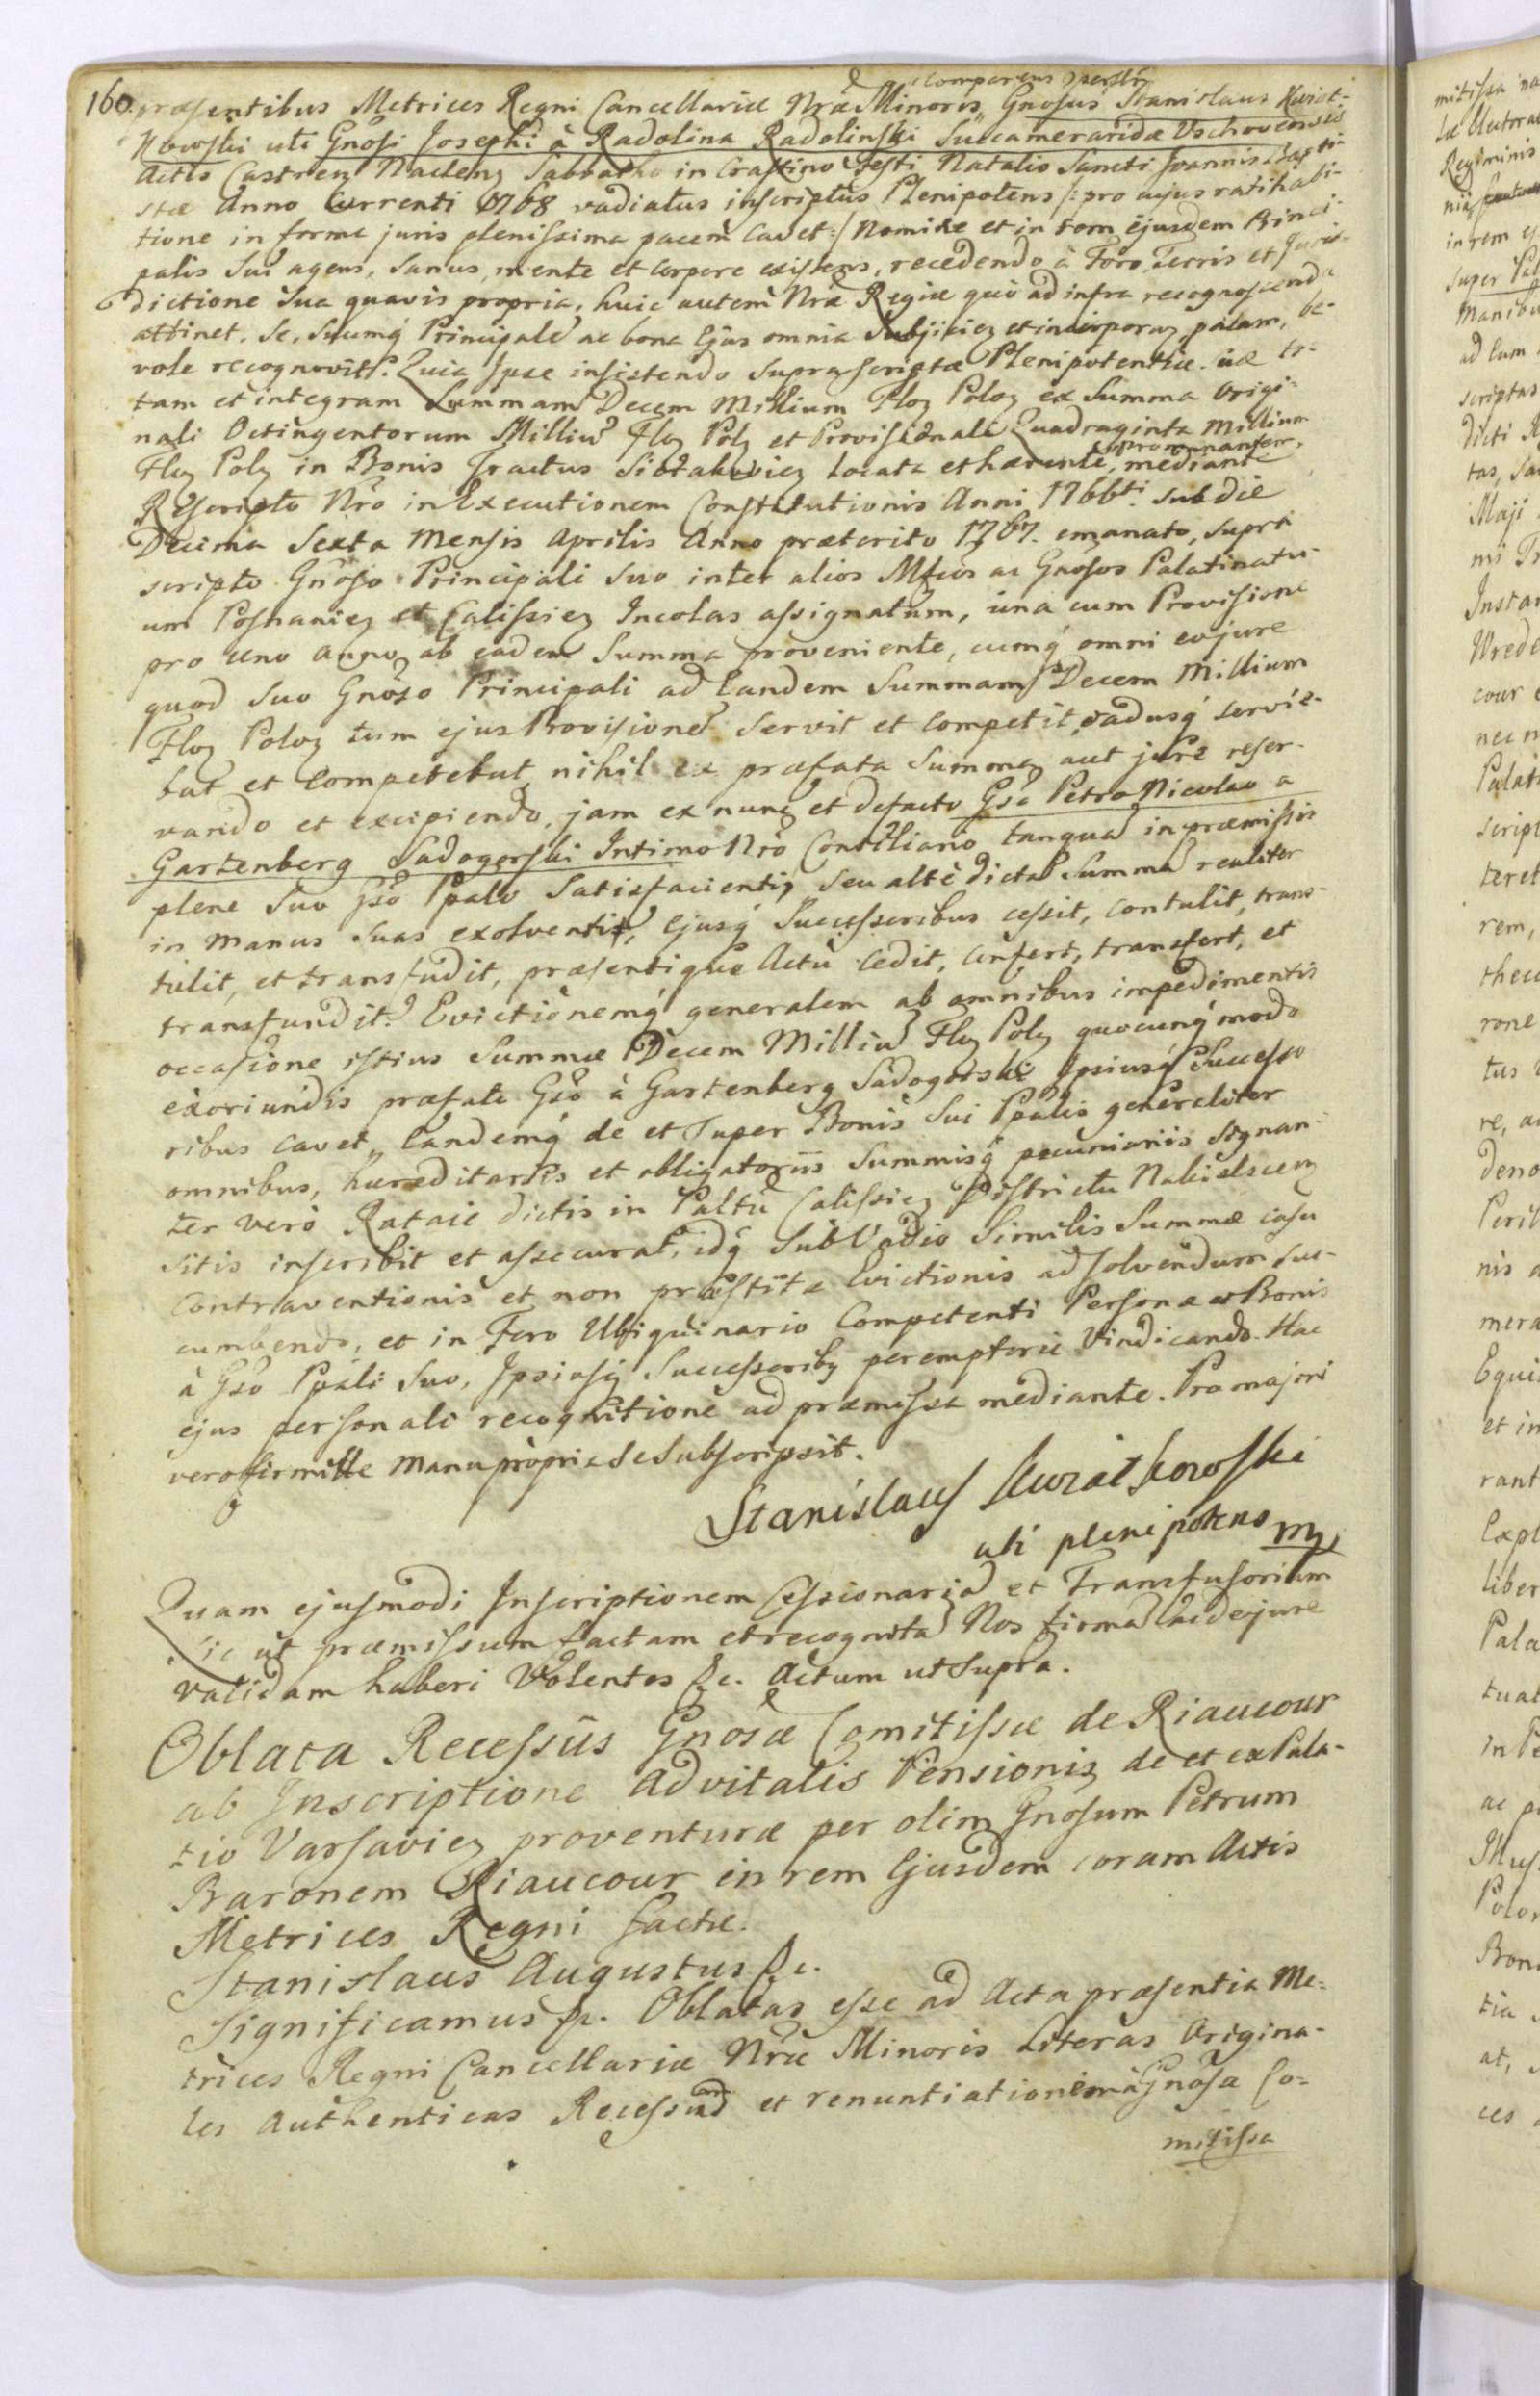 160.
comparens personalr
præsentibus Metrices Regni Cancellariæ Nræ Minoris, Gnosus Stanislaus Kwiat-
kowski uti Gnosi Josephi à Radolina Radolinski Succameraridæ Vschovensis
Actis Castren Naclen Sabbatho in Crastino Festi Natalis Sancti Joannis Bapti-
stæ Anno Currenti 1768 vadiatus inscriptus Plenipotens /: pro cujus ratihabi-
tione in forma juris plenissima pacem Cavet :/ Nomine et in rem ejusdem Princi-
palis Sui agens, Sanus mente et corpore existens, recedendo à Foro, Terris et Juris-
dictione Sua quavis propria, huic autem Nræ Regiæ quò ad infra recognoscenda
attinet, Se, Suumq Principalem ac bona Ejus omnia Subjiciens et incorporans, palam, be-
vole recognovit. Quia Ipse insistendo Suprascriptæ Plenipotentiæ suæ to-
tam et integram Summam Decem Millium Flor Polor ex Summa Origi-
nali Octingentorum Milliu Flor Pol et Provisionali Quadraginta Millium
Flor Pol in Bonis Tractus Siotakovien locata et hærente, promanantem, mediante
Rescripto Nro in Executionem Constitutionis Anni 1766ti sub die
Decima Sexta Mensis Aprilis Anno præterito 1767. emanato, supra
scripto Gnoso Principali Suo inter alios Mfcos ac Gnosos Palatinatu-
um Posnanien et Calissien Incolas assignatam, una cum Provisione
pro uno anno ab eadem Summa proveniente, cumq omni eo jure
quod Suo Gnoso Principali ad Eandem Summam Decem Millium
Flor Polor tum ejus Provisione Servit et Competit, eadusq servie-
bat et Competebat, nihil ex præfata Summa, aut jure reser-
vando et excipiendo, jam ex nunc et defacto Gso Petro Nicolao a
Gartenberg Sadogorski Intimo Nro Consiliario tanqua in præmissis
plene Suo Gso Ppali Satisfacienti, seu alte dicta Summa realiter
in manus Suas exolventis, Ejusq Successoribus cessit, contulit, trans-
tulit, et transfudit, præsentique Actu cedit, confert, transfert, et
transfundit. Evictionemq generalem ab omnibus impedimentis
occasione istius Summæ Decem Milliu Flor Pol quocunq modo
exoriundis præfato Gso à Gartenberg Sadogorski Ipsiusq Successo
ribus cavet, Eandemq de et Super Bonis Sui Ppalis generaliter
omnibus, hæreditariis et obligatoriis Summisq pecuniariis Signan-
ter verò Rataie dictis in Paltu Calissien Districtu Nakielscen
sitis inscribit et assecurat, idq Sub Vadio Similis Summæ casu
Contraventionis et non præstitæ Evictionis ad solvendum suc-
cumbendo, et in Foro Ubiquinario Competenti Persona et Bonis
à Gso Ppali Suo, Ipsiusq Successoriby peremptorie Vindicando. Hac
ejus personali recognitione ad præmissa mediante. Pro majori
vero firmitte manu propria Se Subscripsit.
Stanislaus Kwiatkowski
uti plenipotens mp
Quam ejusmodi Inscriptionem Cessionaria et Transfusoriam
sic ut præmissum factam et recognita Nos firma ac de jure
validam haberi Volentes &c. Actum ut Supra.
Oblata Recessûs Gnosæ Comitissæ de Riaucour
ab Inscriptione advitalis Pensionis de et ex Pala-
tio Varsavien proventuræ per olim Gnosum Petrum
Baronem Riaucour in rem Ejusdem coram Actis
Metrices Regni factæ.
Stanislaus Augustus &c.
Significamus &c. Oblatas esse ad Acta præsentia Me-
trices Regni Cancellariæ Nræ Minoris Literas Origina-
les Authenticas Recessum et renuntiationem à Gnosa Co-
mitissa